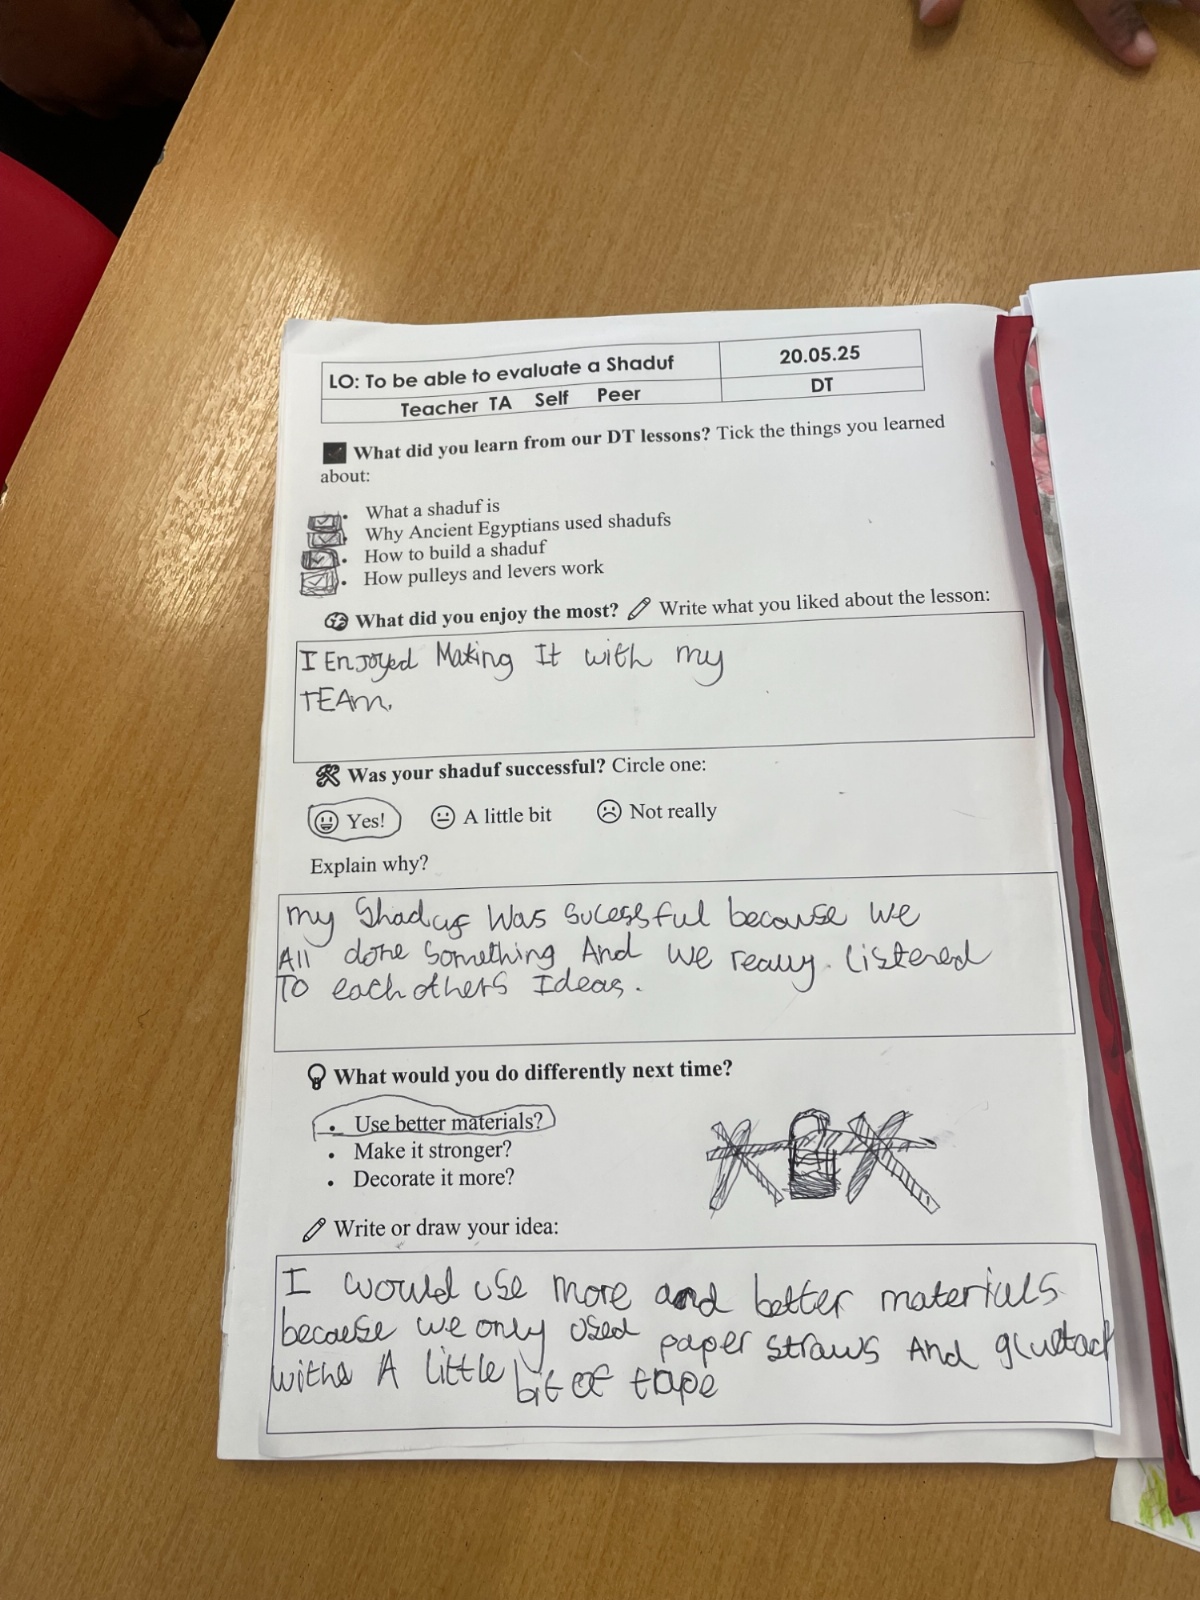 LO: To be able to evaluate a Shaduf
20.05.25
Teacher TA Self Peer
DT
What did you learn from our DT lessons? Tick the things you learned
about:
• What a shaduf is
• Why Ancient Egyptians used shadufs
• How to build a shaduf
• How pulleys and levers work
What did you enjoy the most? Write what you liked about the lesson:
I EnJoyed Making It with my
TEAm.
Was your shaduf successful? Circle one:
Yes! A little bit Not really
Explain why?
my Shaduf Was Sucessful because we
All done Something And we really listened
To each others Ideas.
What would you do differently next time?
• Use better materials?
• Make it stronger?
• Decorate it more?
Write or draw your idea:
I would use more and better materials
because we only used paper straws And
A little bit of tape